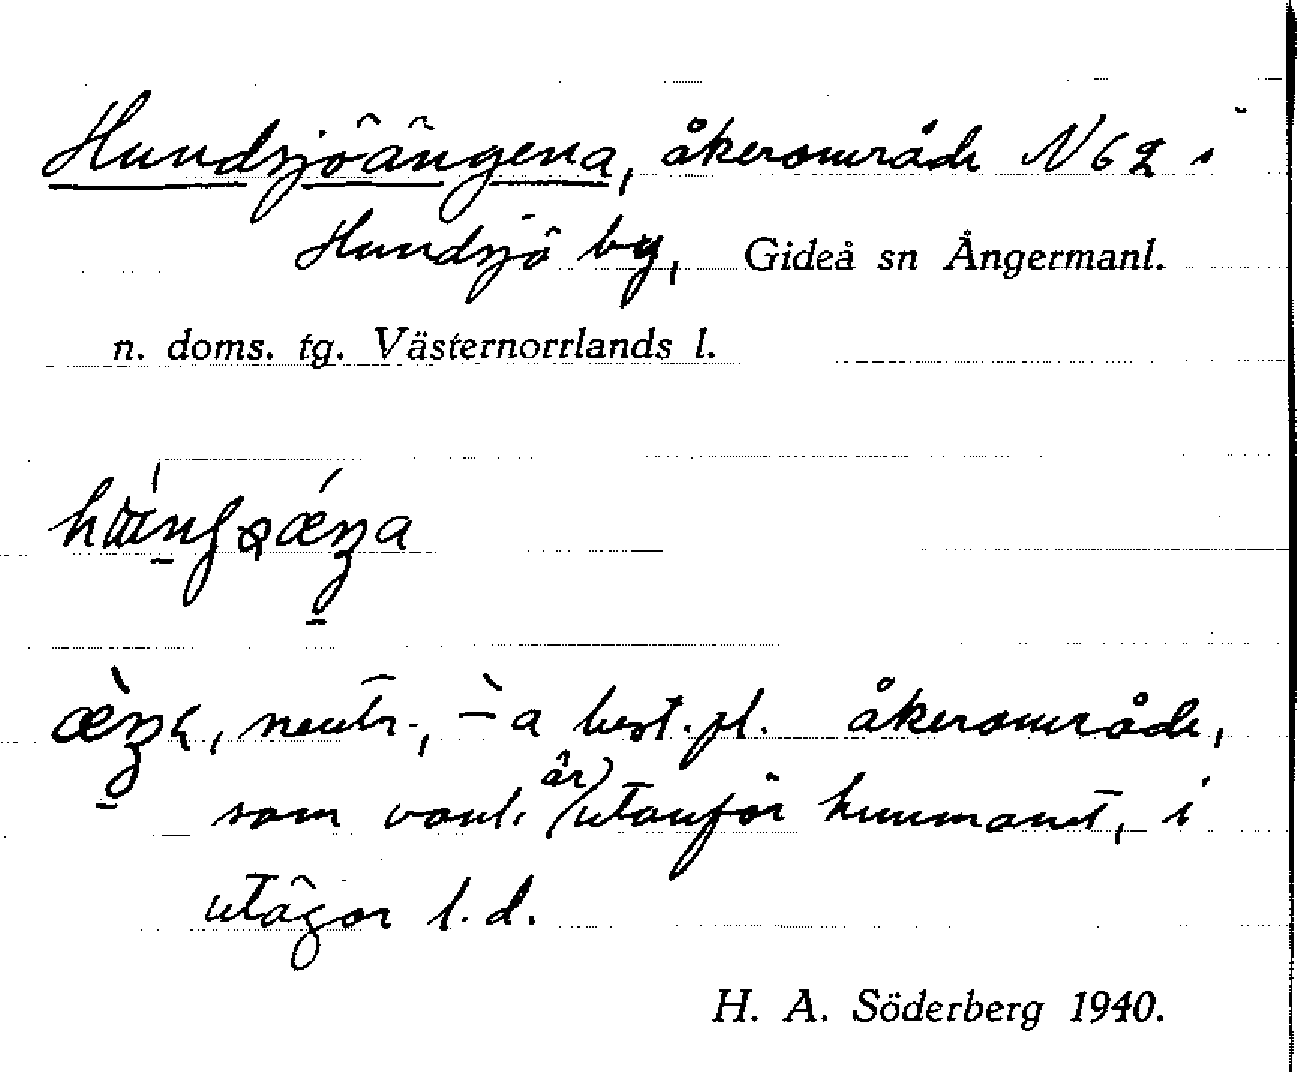 Hundsjöängena, åkerområde N62 i
Hundsjö by, Gideå sn Ångermanl.
n. doms. tg. Västernorrlands l.
neutr., -̀a best. pl. åkerområde,
som vanl. är utanför hemmanet, i
utägor l. d.
H. A. Söderberg 1940.